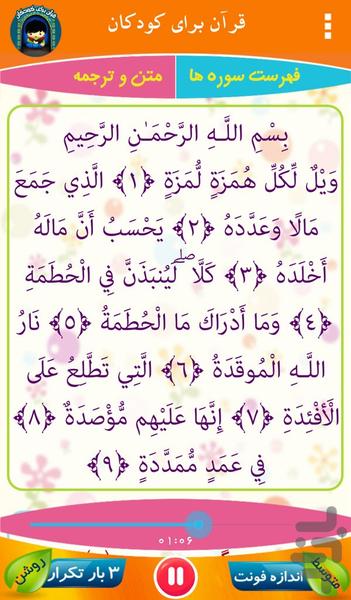 قرآن برای کودکان
قرآن برای کودکان
فهرست سوره ها
متن و ترجمه
بِسْمِ اللَّـهِ الرَّحْمَـٰنِ الرَّحِيمِ
وَيْلٌ لِّكُلِّ هُمَزَةٍ لُّمَزَةٍ ﴿١﴾ الَّذِي جَمَعَ
مَالًا وَعَدَّدَهُ ﴿٢﴾ يَحْسَبُ أَنَّ مَالَهُ
أَخْلَدَهُ ﴿٣﴾ كَلَّا ۖ لَيُنبَذَنَّ فِي الْحُطَمَةِ
﴿٤﴾ وَمَا أَدْرَاكَ مَا الْحُطَمَةُ ﴿٥﴾ نَارُ
اللَّـهِ الْمُوقَدَةُ ﴿٦﴾ الَّتِي تَطَّلِعُ عَلَى
الْأَفْئِدَةِ ﴿٧﴾ إِنَّهَا عَلَيْهِم مُّؤْصَدَةٌ ﴿٨﴾
فِي عَمَدٍ مُّمَدَّدَةٍ ﴿٩﴾
٠١:٠٦
متوسط
اندازه فونت
۳ بار تکرار
روشن
بازار